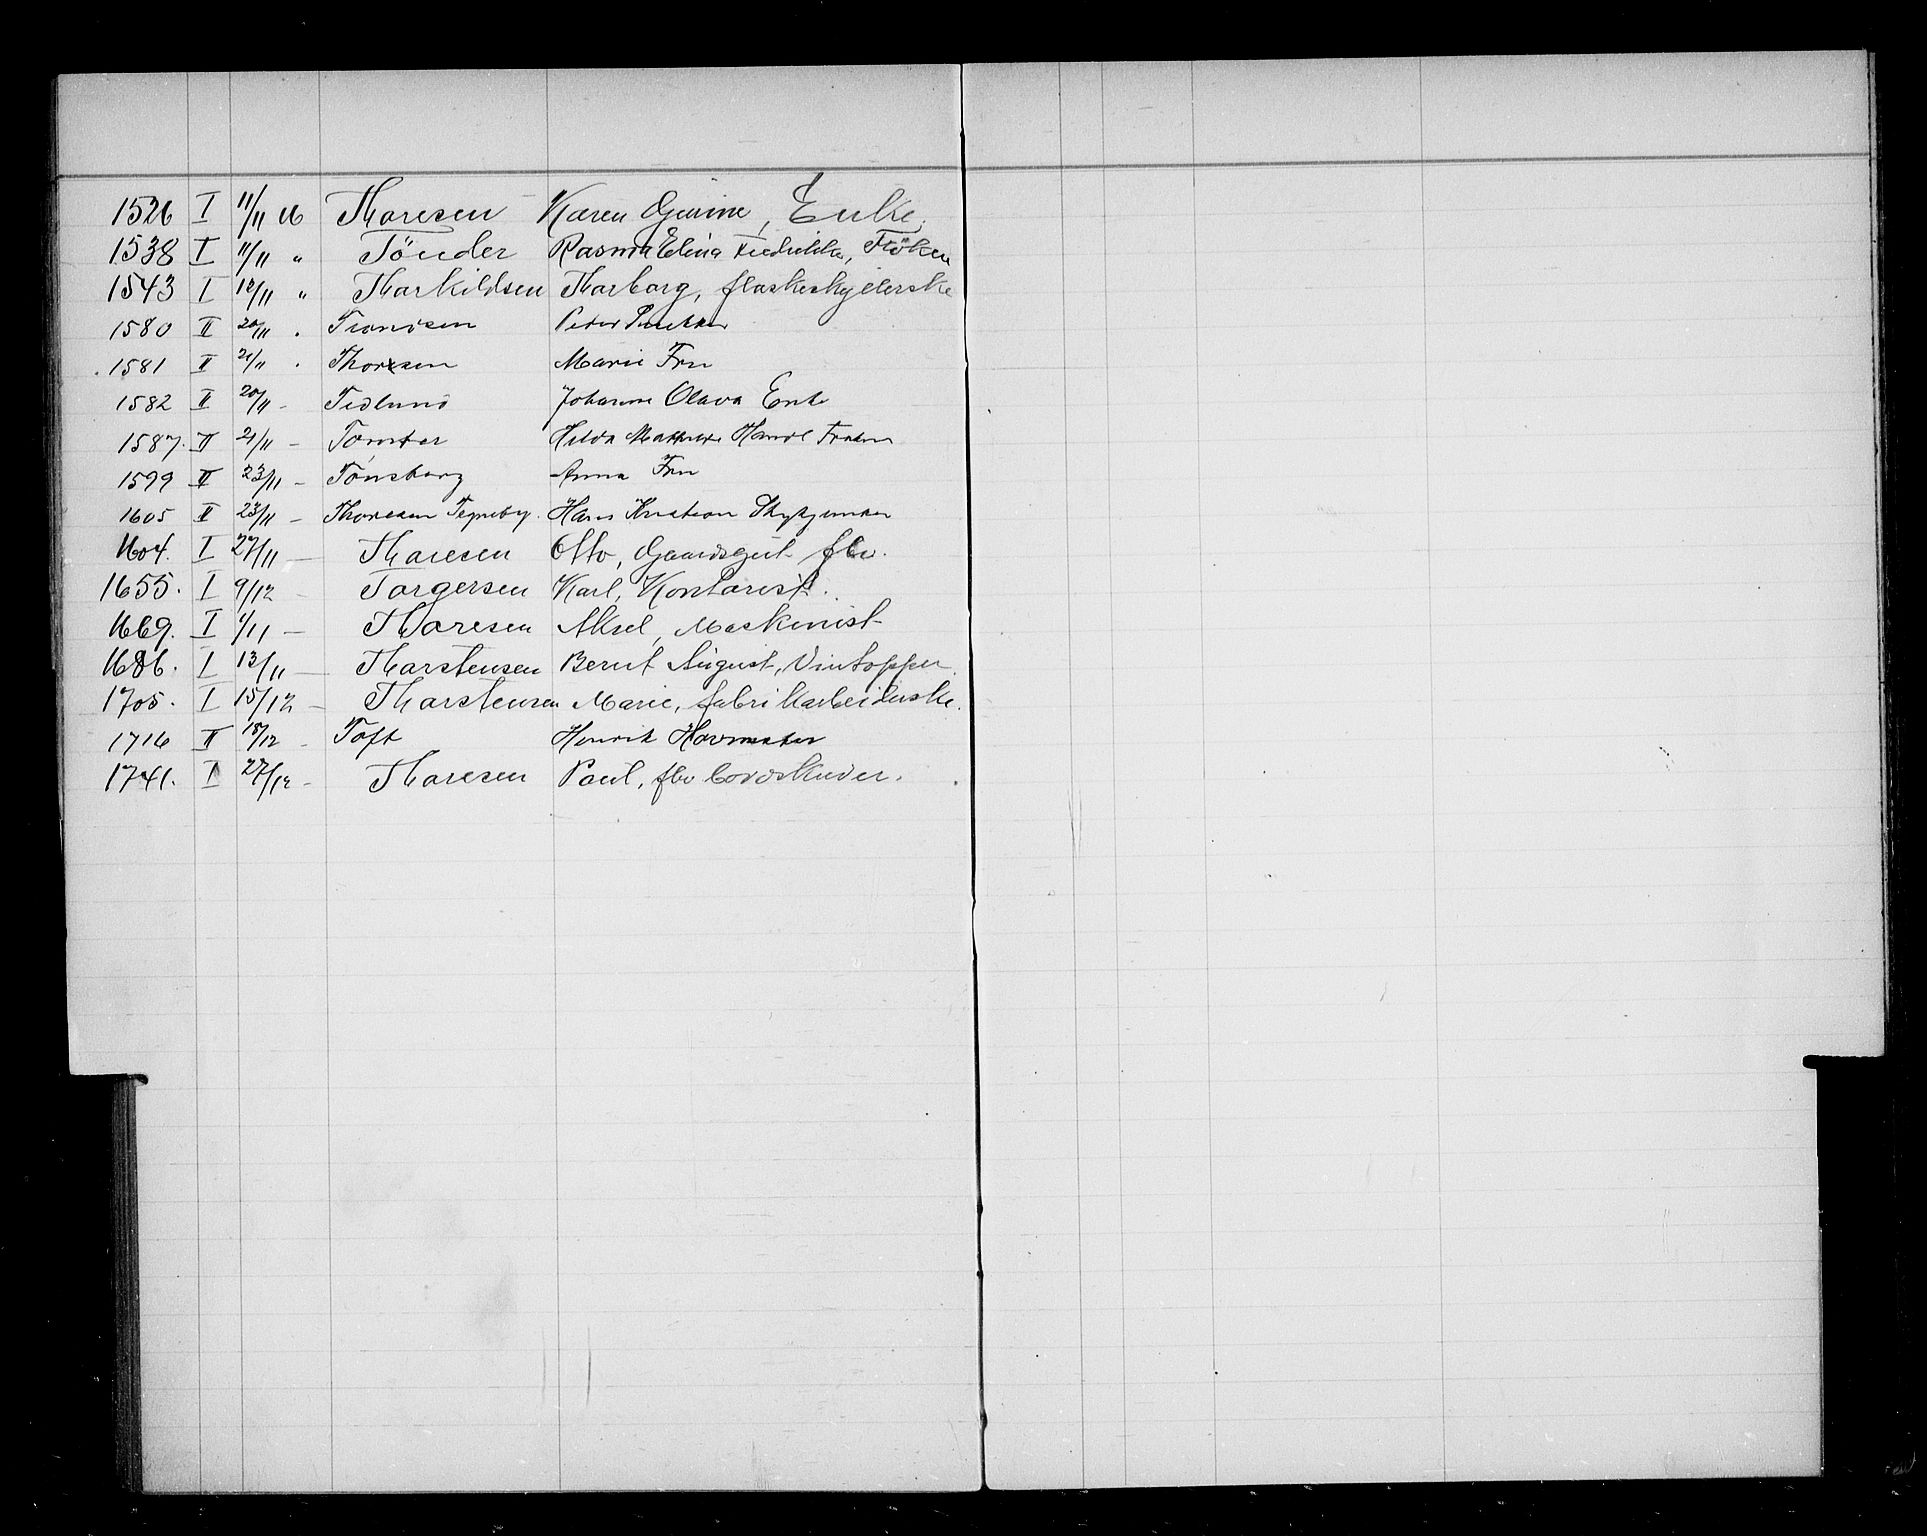 1526 I 11/11 16 Thoresen Karen Gurine, Enke.
1538 I 11/11 " Tönder Rasma Elina Fredrikke, Fröken
1543 I 12/11 " Thorkildsen Thorborg, flaskeskyllerske
1580 II 20/11 . Trondsen Peder
1581 II 21/11 . Thorsen Marie Fru
1582 II 20/11 - Tedlund Johanne Olava Enke
1587. II 21/11 - Tömter Hilda Mathilde
1599 II 23/11 - Tönsberg Anna Fru
1605 II 23/11 - Thoresen Tegneby. Hans Kristian
1604. I 27/11 - Thoresen Otto, Gaardsgut fhv.
1655. I 9/12 - Torgersen Karl, Kontorist.
1669. I 1/11 - Thoresen Aksel, Maskinist
1686. I 13/11 - Thorstensen Bernt August, Vintapper
1705. I 15/12 - Thorstensen Marie, fabrikarbeiderske.
1716 II 18/12 - Toft Henrik Havnearbe
1741. I 27/12 - Thoresen Paul, fhv